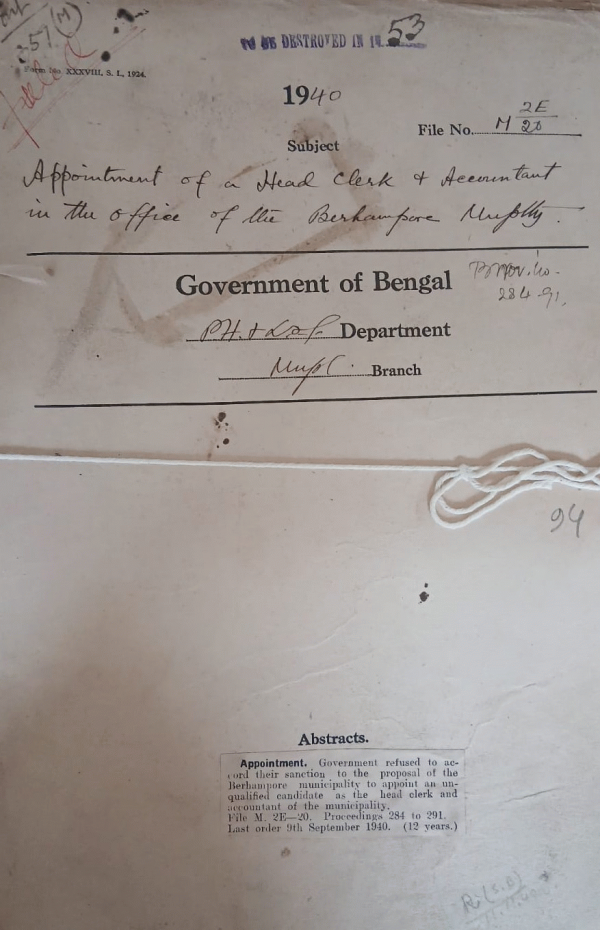 57 (M)
TO BE DESTROYED IN 19 53
Form No. XXXVIII, S. L, 1924.
1940
File No. M 2E/20
Subject
Appointment of a Head Clerk & Accountant
in the office of the Berhampore Muplty.
Government of Bengal
284-91.
P.H. & L.S.G. Department
Branch
94
Abstracts.
Appointment. Government refused to ac-
cord their sanction to the proposal of the
Berhampore municipality to appoint an un-
qualified candidate as the head clerk and
accountant of the municipality.
File M. 2E—20. Proceedings 284 to 291.
Last order 9th September 1940. (12 years.)